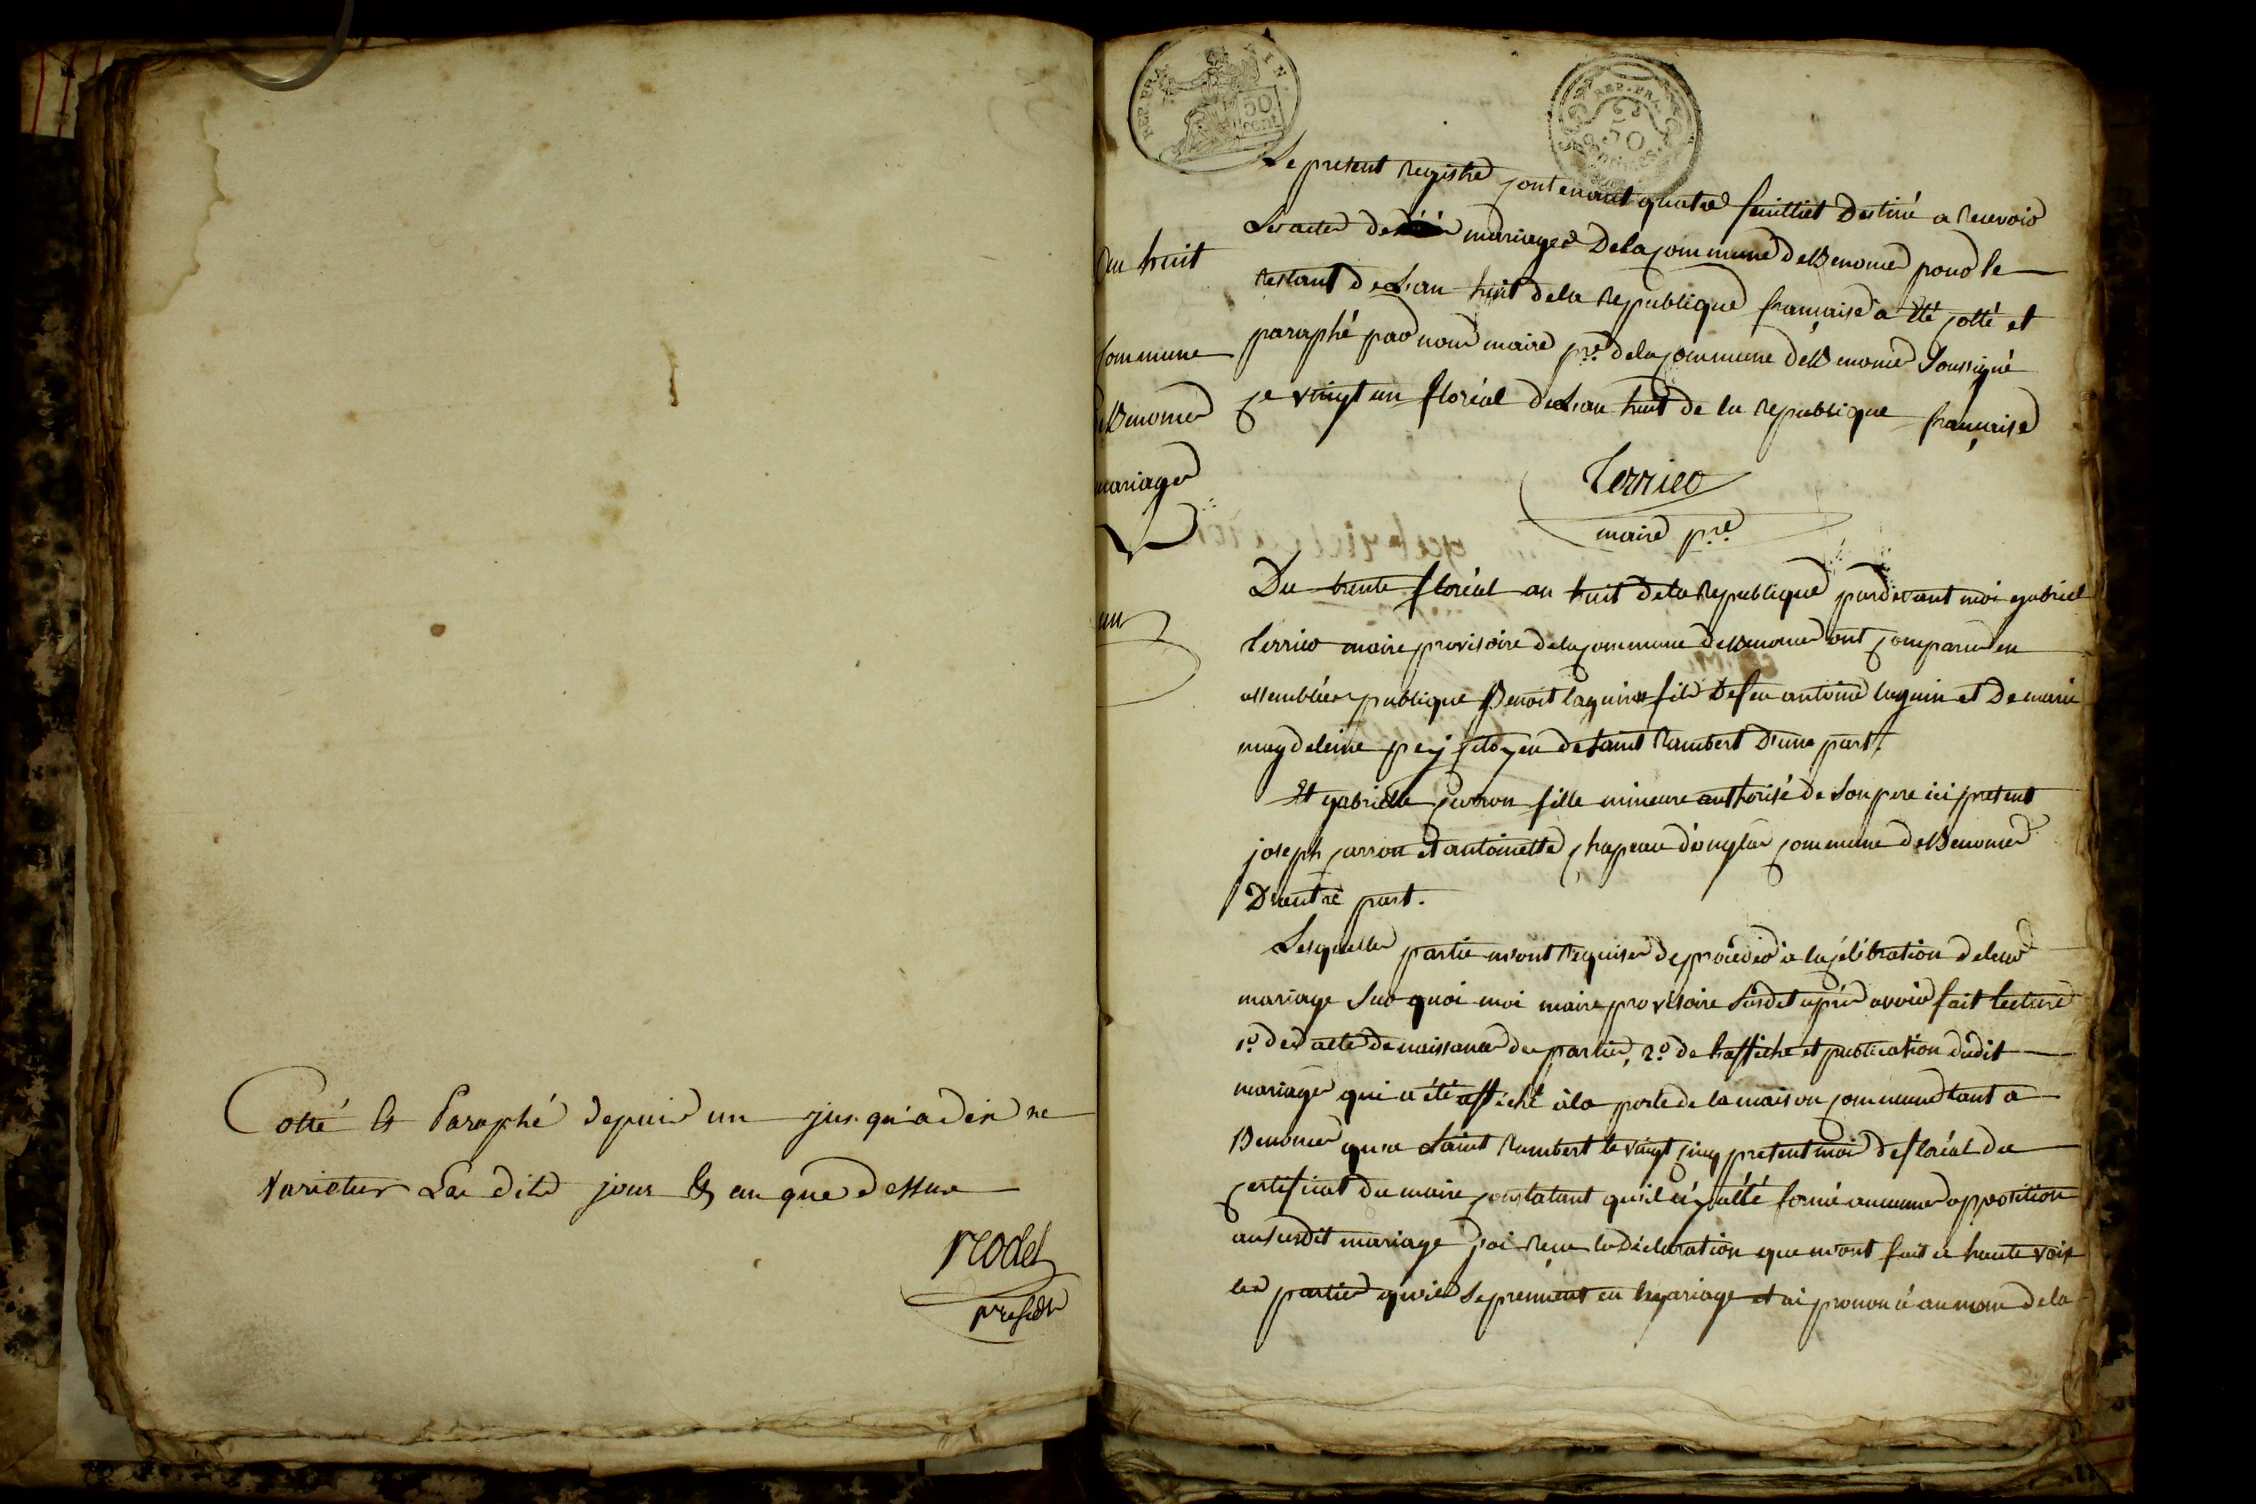 Cotté & Paraphé depuis un jusqu'a dix ne
varietur Les dits jour & an que dessus
rodet
presidt
REP. FRA.
50
cent
REP. FRA.
50
an huit
Commune
de Benonce
mariages
un
Le présent registre contenant quatre feuillet destiné a recevoir
Les actes de mariages de la commune de Benonce pour le
restant de L'an huit de la republique française a été cotté et
paraphé par nous maire pre. de la commune de Benonce Soussigné
ce vingt un floréal de L'an huit de la republique française
Terrier
maire pre.
Du trente floréal an huit de la republique pardevant moi gabriel
terrier maire provisoire de la commune de Benonce ont comparus en
assemblées publique Benoit laguin fils de feu antoine laguin et de marie
magdeleine pey citoyen de saint Rambert d'une part.
Et gabrielle carron fille mineure authorisé de son pere ici present
joseph carron et antoinette chapeau d'onglas commune de Benonce
D'autre part.
Lesquelles partie m'ont requises de procéder à la célébration de leur
mariage Sur quoi moi maire provisoire Susdit après avoir fait lecture
1º. des acte de naissance des parties, 2º. de l'affiche et publication dudit
mariage qui a été affiché à la porte de la maison commune tant a
Benonce qu'a Saint Rambert le vingt cinq present mois de floréal du
certificat du maire constatant qu'il n'y a été formé aucunne opposition
au susdit mariage j'ai reçu la Déclaration que m'ont fait a haute voix
les parties qu'ils se prennent en mariage et ai prononcé au nom de la